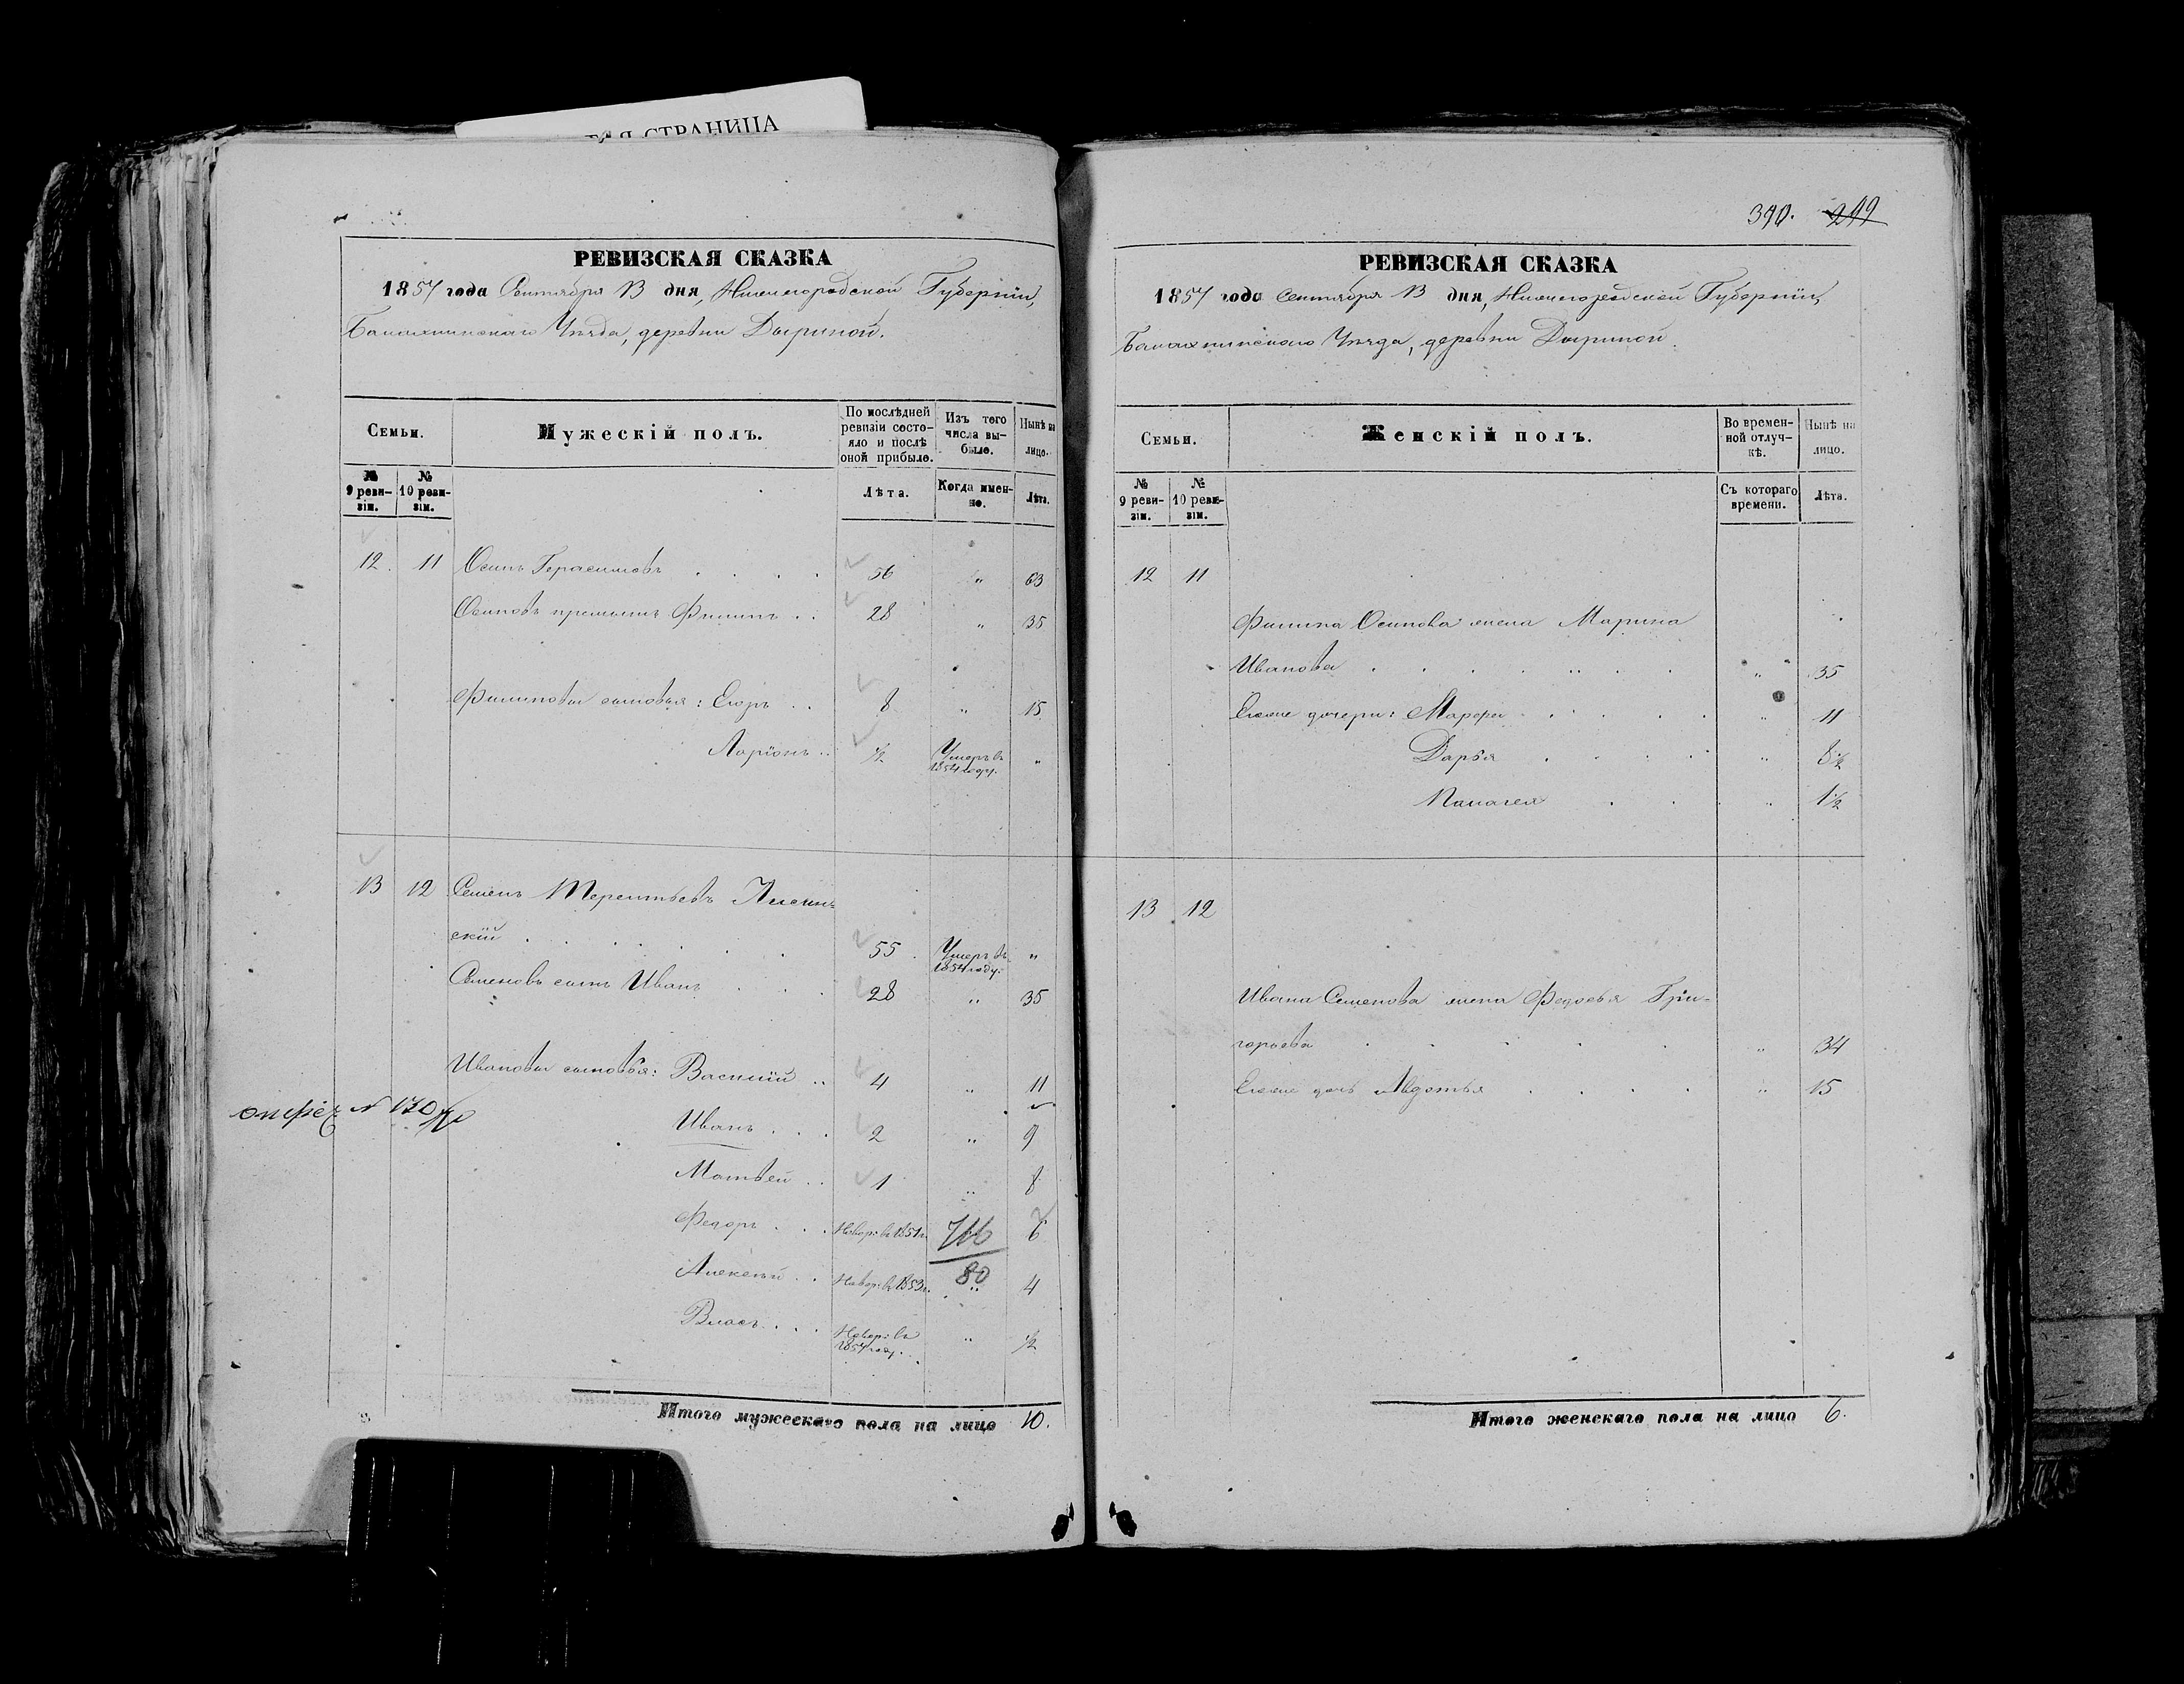 АЯ СТРАНИЦА
РЕВИЗСКАЯ СКАЗКА
1857 года Сентября 13 дня, Нижегородской Губерніи,
Балахнинскаго Уѣзда, деревни Дыриной.
Семьи.
Мужескій полъ.
По послѣдней ревизіи состояло и послѣ оной прибыло.
Изъ того числа выбыло.
Нынѣ на лицо.
№ 9 ревизіи.
№ 10 ревизіи.
Лѣта.
Когда именно.
Лѣта.
12. 11 Осипъ Герасимовъ . . . . 56 " 63
Осиповъ Филипъ . . 28 " 35
Филиповы сыновья: Егоръ . . 8 " 15
Ларіонъ . . ½ Умеръ въ 1854 году. "
13 12 Семенъ Терентьевъ
скій . . . . . . 55 Умеръ въ 1854 году. "
Семеновъ сынъ Иванъ . . . 28 " 35
Ивановы сыновья: Василій . . 4 " 11
№ 130
Иванъ . . . 2 " 9
Матвей . . 1 " 8
Федоръ . . . Новор: въ 1851 г. 716 6
Алексѣй . . Новор: въ 1853 г. 80 " 4
Власъ . . . Новор: въ 1857 году. " ½
Итого мужескаго пола на лицо 10.
390. 299
РЕВИЗСКАЯ СКАЗКА
1857 года Сентября 13 дня, Нижегородской Губерніи,
Балахнинскаго Уѣзда, деревни Дыриной.
Семьи.
Женскій полъ.
Во временной отлучкѣ.
Нынѣ на лицо.
№ 9 ревизіи.
№ 10 ревизіи.
Съ котораго времени.
Лѣта.
12 11
Филипа Осипова жена Марина
Иванова . . . . . . . " 35
Ихже дочери: Марфа . . . . . " 11
Дарья . . . . " 8½
Палагея . . . " 1½
13 12
Ивана Семенова жена Федосья Гри-
горьева . . . . . " 34
Ихже дочь Авдотья . . . . " 15
Итого женскаго пола на лицо 6.